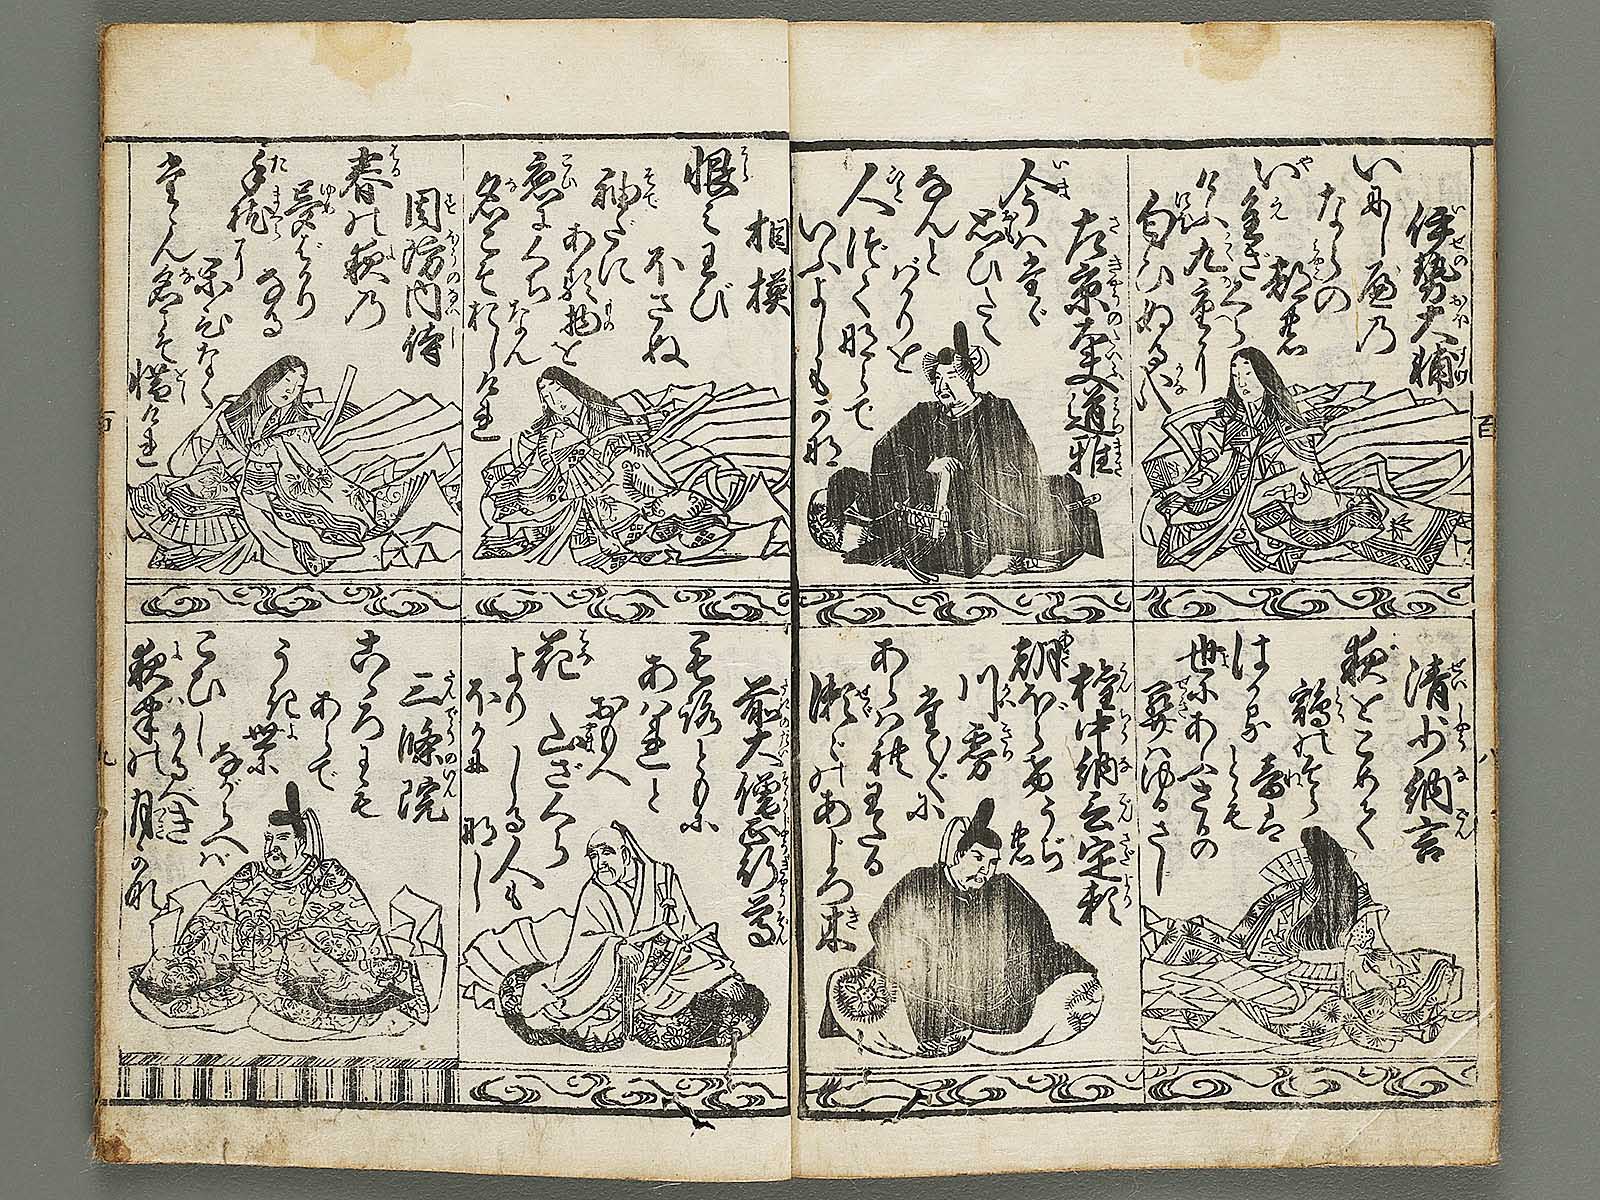 伊勢大輔
いにしへ乃
ならの
都の
八重ざくら
けふ九重に
匂ひぬる哉
清少納言
夜をこめて
鶏のそら
音は
はかるとも
世にあふさかの
関ハゆるさじ
左京大夫道雅
今ハたゞ
思ひたえ
なんと
ばかりを
人づてならで
いふよしもかな
権中納言定頼
朝ぼらけうぢの
川霧
たえ〲に
あらハれわたる
瀬ゞのあじろ木
相模
恨ミわび
ほさぬ
袖だに
ある物を
恋にくちなん
名こそおしけれ
前大僧正行尊
毛路ともに
あはれと
おもへ
山ざくら
花より
ほかに
しる人も
なし
周防内侍
春の夜乃
夢ばかり
なる
手枕に
かひなく
たゝん名こそ
惜けれ
三條院
こゝろにも
あらで
うき世に
ながらへば
こひし
かるべき
夜半の月かな
百
八
百
九